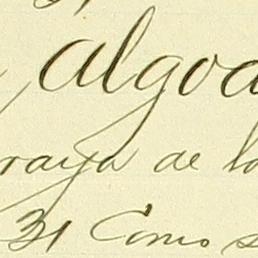 Algod
raya de la
31 Como s